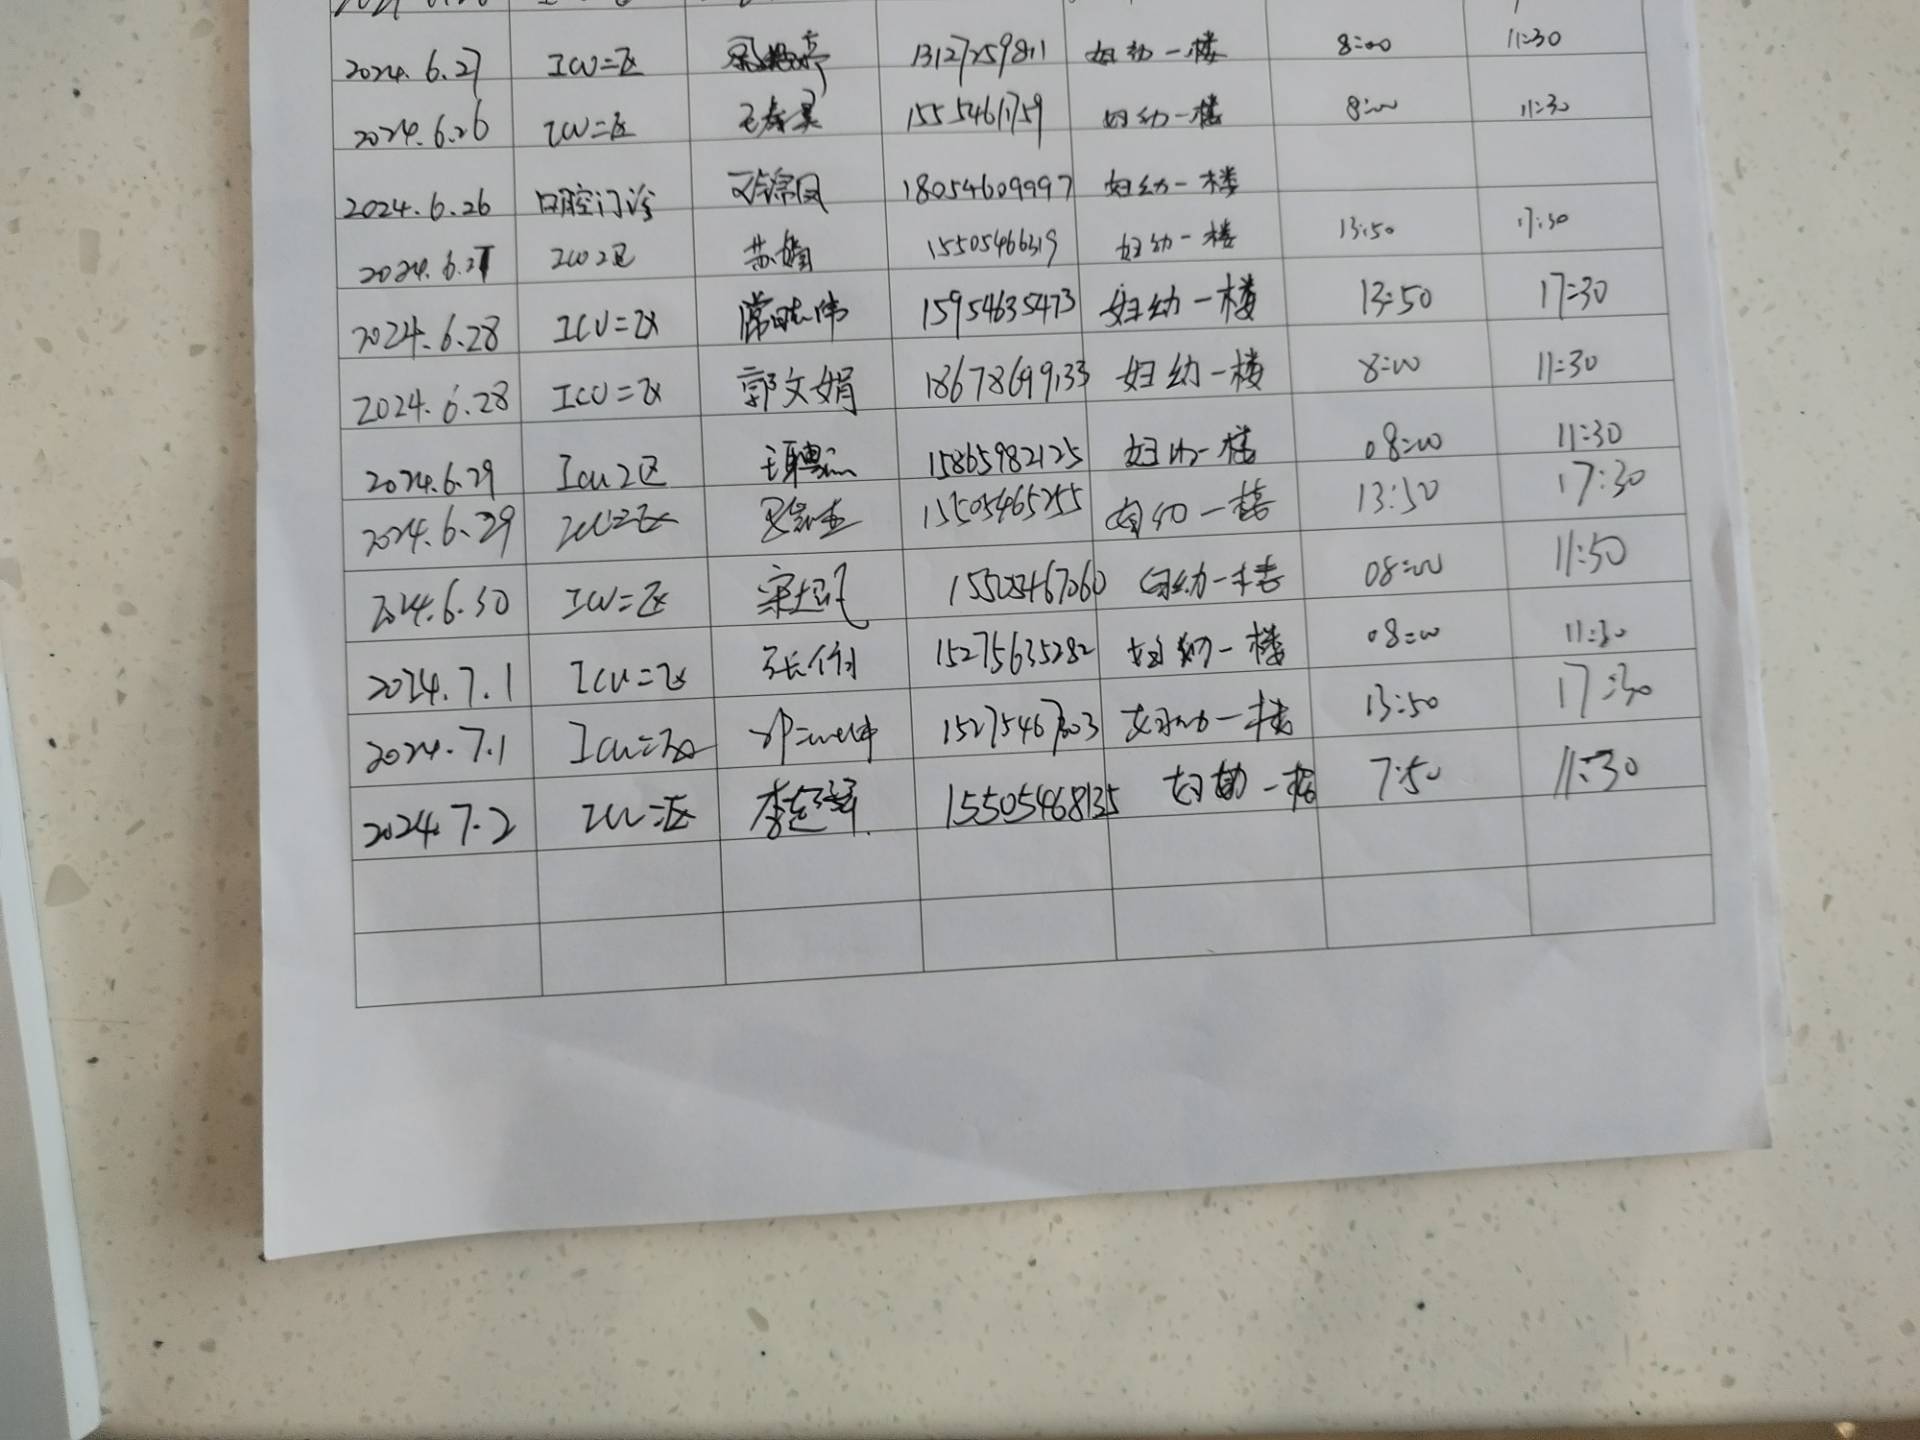 2024.6.27 ICU二区 13127259811 妇幼一楼 8:00 11:30
2024.6.26 ICU二区 15554611759 妇幼一楼 8:00 11:30
2024.6.26 口腔门诊 18054609997 妇幼一楼
2024.6.27 ICU2区 苏娟 15505466319 妇幼一楼 13:50 17:30
2024.6.28 ICU二区 15954635473 妇幼一楼 13:50 17:30
2024.6.28 ICU二区 郭文娟 18678699133 妇幼一楼 8:00 11:30
2024.6.29 ICU2区 15865982125 妇幼一楼 08:00 11:30
2024.6.29 ICU二区 15505465255 妇幼一楼 13:50 17:30
2024.6.30 ICU二区 15505467060 妇幼一楼 08:00 11:50
2024.7.1 ICU二区 15275635282 妇幼一楼 08:00 11:30
2024.7.1 ICU二区 妇幼一楼 13:50 17:30
2024.7.2 ICU二区 15505468135 妇幼一楼 7:50 11:30